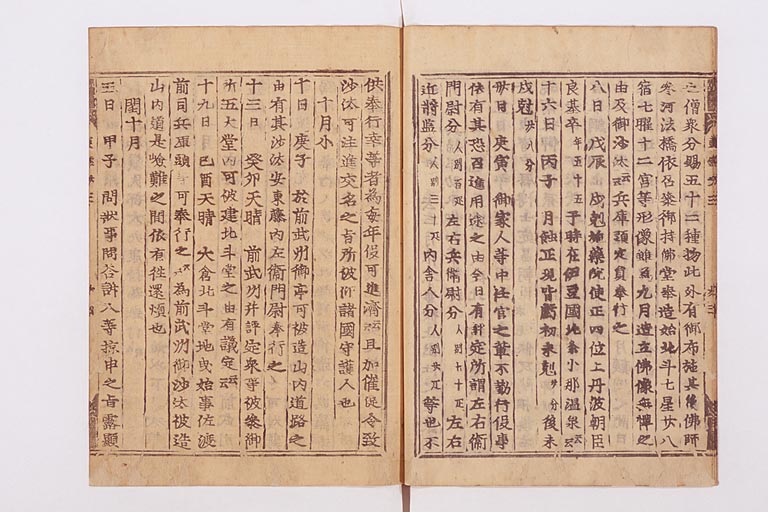 之僧衆分賜五十二種物此外有御布施其後佛師
参河法橋依召参御持佛堂奉造始北斗七星廿八
宿七曜十二宮等形像雖爲九月造立佛像無憚之
由及御沙汰云云兵庫頭定員奉行之
八日 戊辰 戌剋施藥院使正四位上丹波朝臣
良基卒年五十五于時在伊豆國北條小那温泉云云
十六日丙子 月蝕正現皆虧初未剋分復末
戌剋廿八分
卅日 庚寅 御家人等中任官之輩不勤行役事
依有其恐召進用途之由今日有評定所謂左右衛
門尉分人別百疋左右兵衛尉分人別七十疋左右
近將監分人別三十疋内舎人分人別廿疋等也不
供奉行幸等者爲毎年役可進濟云云且加催促令致
沙汰可注進交名之旨所被仰諸國守護人也
十月小
十日 庚子 於前武州御亭可被造山内道路之
由有其沙汰安東藤内左衛門尉奉行之
十三日 癸卯天晴 前武州并評定衆等被参御
所五大堂内可被建北斗堂之由有議定云云
十九日 己酉天晴 大倉北斗堂地曳始事佐渡
前司兵庫頭等可奉行之云云爲前武州御沙汰被造
山内道是嶮難之間依有往還煩也
閏十月
五日 甲子 問状事問答訴人等掠申之旨露顯